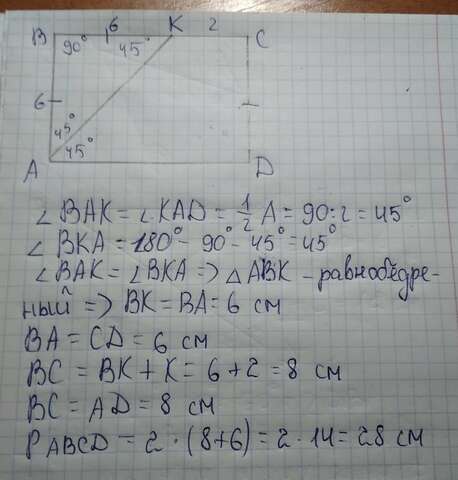 B 6 K 2 C
90° 45°
6
45°
45°
A D
∠ BAK = ∠ KAD = 1/2 A = 90:2 = 45°
∠ BKA = 180° - 90° - 45° = 45°
∠ BAK = ∠ BKA => △ ABK - равнобедре-
ный => BK = BA = 6 см
BA = CD = 6 см
BC = BK + K = 6 + 2 = 8 см
BC = AD = 8 см
P ABCD = 2 · (8+6) = 2 · 14 = 28 см